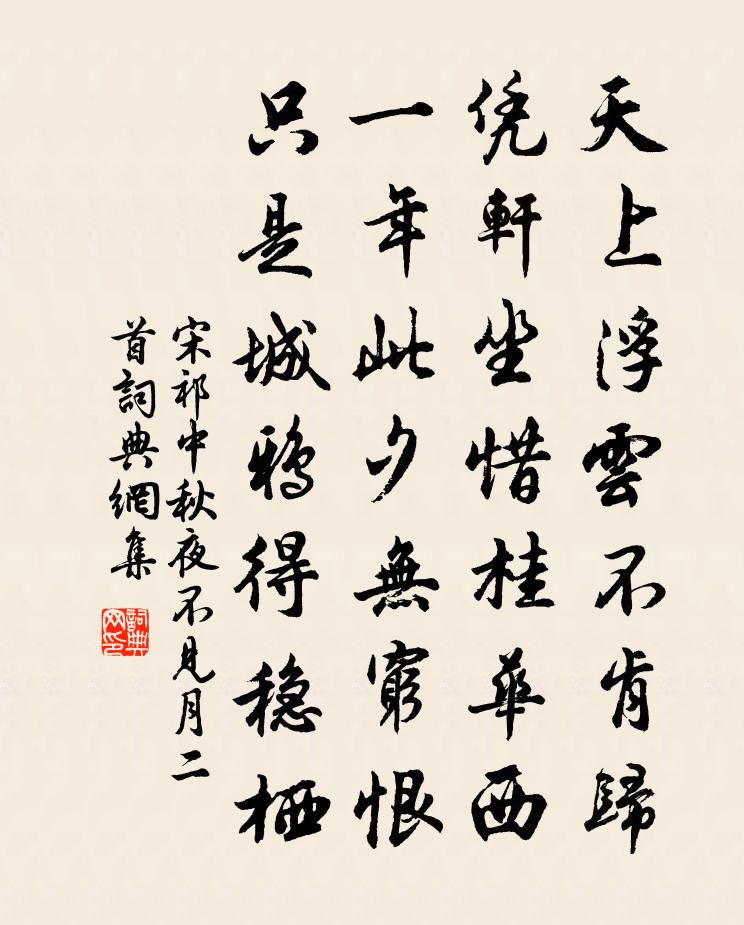 天上浮雲不肯歸
凭軒坐惜桂華西
一年此夕無窮恨
只是城鴉得穩栖
宋祁中秋夜不見月二
首詞典網集
詞典网印